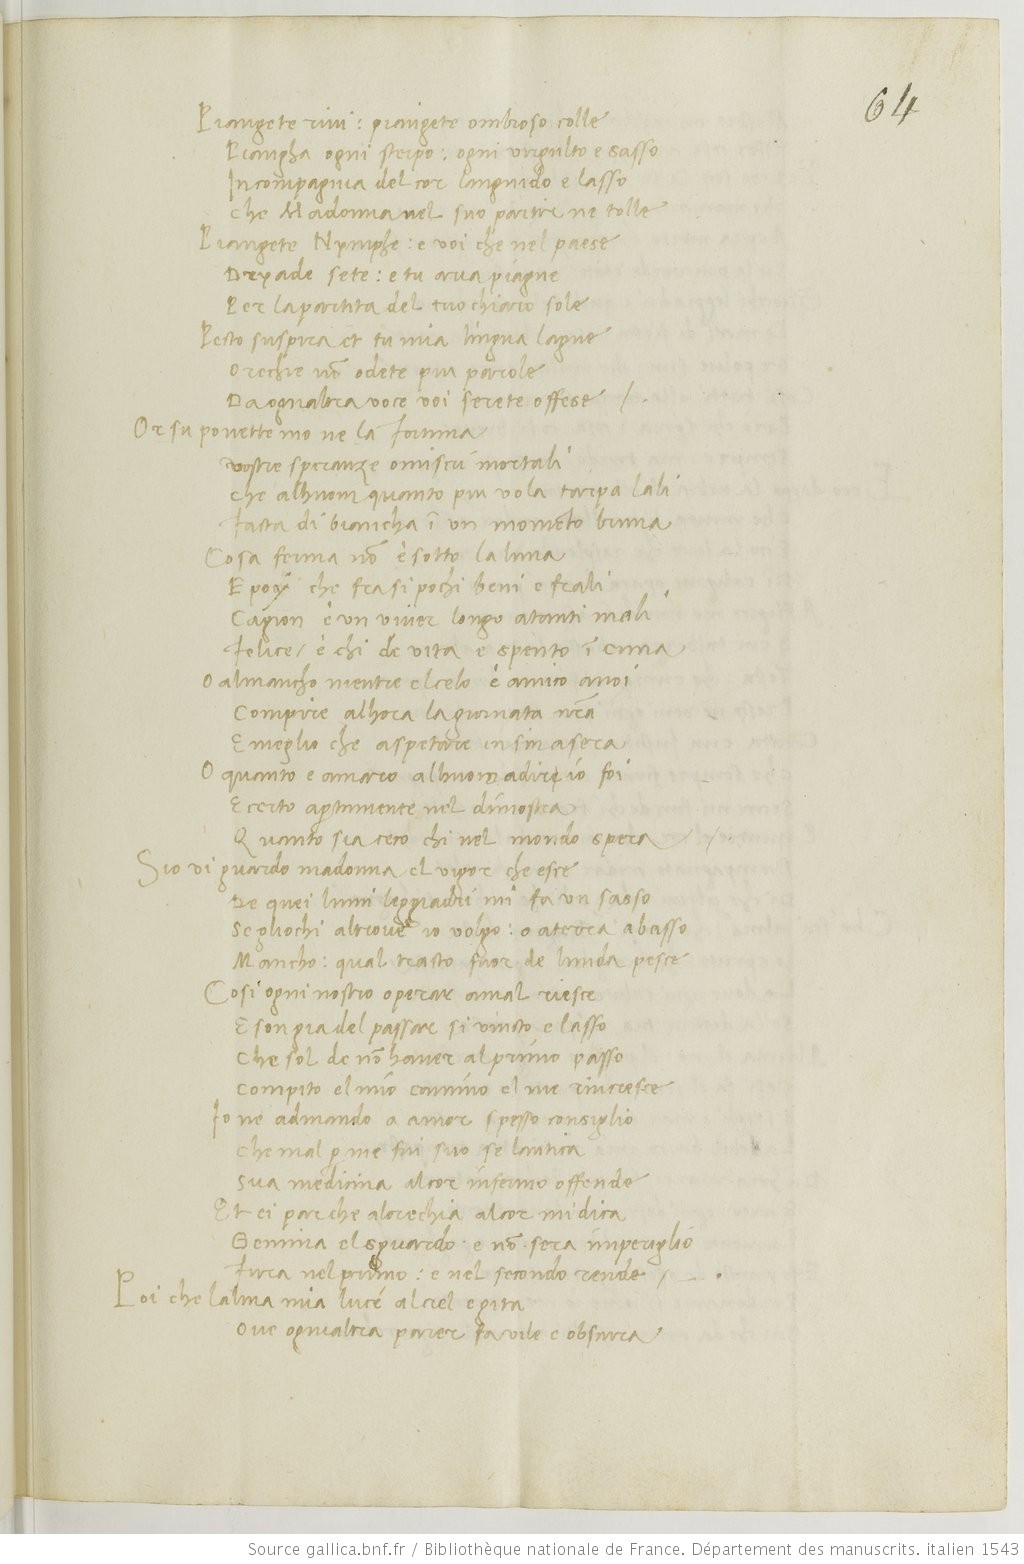 64
Piangete rivi: piangete ombroso colle
Piangha ogni sterpo: ogni virgulto e sasso
In compagnia del cor languido e lasso
Che Madonna nel suo partir ne tolle
Piangete Nymphe: e voi che nel paese
Dryade sete: e tu arva piagne
Per la partita del tuo chiaro sole
Pecto suspira et tu mia lingua lagne
Orechie nõ odete piu parole
Da ognaltra voce voi serete offese /.
Or su ponette mo ne la fortuna
vostre speranze o miseri mortali
che alhuom quanto piu vola tarpa lali
facta di biancha ĩ un momẽto bruna
Cosa ferma nõ è sotto la luna
E poy che fra si pochi beni e frali
Cagion è un viver longo a tanti mali
felice è chi de vita e spento ĩ cuna
O almancho mentre el celo è amico a noi
Compire alhora la giornata nr̃a
E meglio che aspetare in sin a sera
O quanto e amaro alhuom a dire io foi
E certo aptamente nel dimostra
Quanto sia ceco chi nel mondo spera /.
Sio vi guardo madonna el vigor che esce
De quei lumi leggiadri mi fa un sasso
Se gliochi altrove io volgo: o a terra a basso
Mancho: qual tracto fuor de lunda pesce
Cosi ogni nostro operar a mal riesce
E son gia del passar si vincto e lasso
Che sol de nõ haver al primo passo
Compito el mio camino el me rincresce
Io ne admando a amor spesso consiglio
che mal p me fui suo se lantica
sua medicina al cor infermo offende
Et ei par che alorechia al cor mi dica
Gemina el sguardo: e nõ sera im periglio
fura nel primo: e nel secondo rende /.
Poi che lalma mia luce al ciel e gita
Ove ognialtra parer fa vile e obscura
Source gallica.bnf.fr / Bibliothèque nationale de France. Département des manuscrits. italien 1543